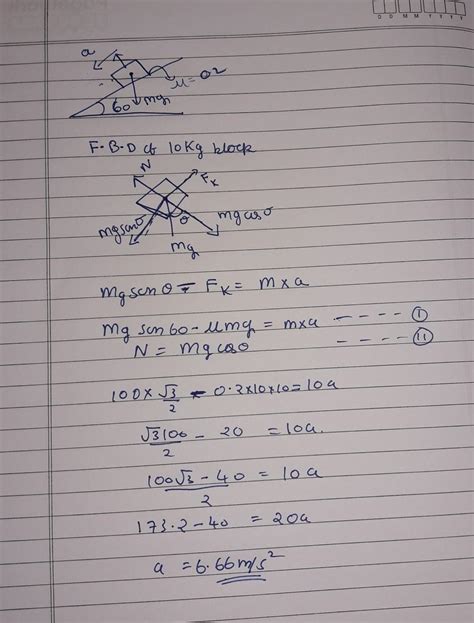 D D M M Y Y Y Y
a
μ = 02
60 mg
F.B.D of 10Kg block
N
Fк
θ
mgsinθ
mgcosθ
mg
mgsinθ - Fк = m×a
mg sin60 - μmg = m×a - - - - I
N = mgcosθ - - - - II
100 × √3/2 - 0.2×10×10 = 10a
√3100/2 - 20 = 10a.
100√3 - 40/2 = 10a
173.2 - 40 = 20a
a = 6.66m/s²